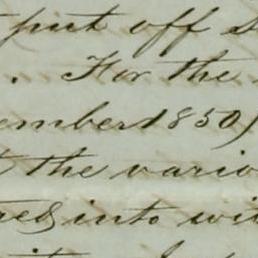 put off
. For the
ember 1850)
the vario
into wit